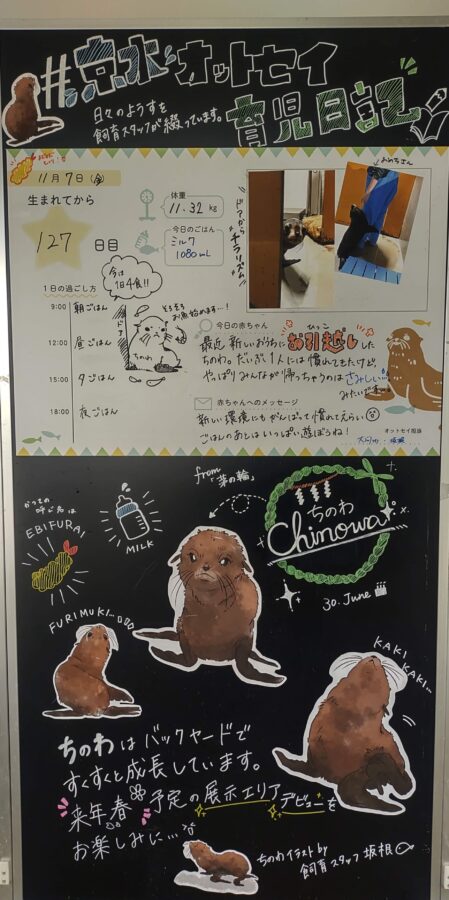 #京水オットセイ
育児日記
日々のようすを
飼育スタッフが綴っています。
11月7日(金)
生まれてから
127日目
体重
11.32 kg
今日のごはん
ミルク
1080mL
ドアからチラリズム
1日の過ごし方
9:00 朝ごはん
12:00 昼ごはん
15:00 夕ごはん
18:00 夜ごはん
今は
1日4食!!
そろそろ
お魚始めます…!
ドア
ちのわ
今日の赤ちゃん
最近 新しいおうちにお引越しした
ひっこ
ちのわ。だいぶ1人には慣れてきたけど、
やっぱりみんなが帰っちゃうのはさみしい…
みたいです…
赤ちゃんへのメッセージ
新しい環境にもがんばって慣れてえらい
ごはんのあとはいっぱい遊ぼうね!
オットセイ担当
かつての
呼び名は
EBIFURAI
MILK
from「茅の輪」
ちのわ
Chinowa
30. June
FURIMUKI...
KAKI
KAKI...
ちのわはバックヤードで
すくすくと成長しています。
来年春予定の展示エリアデビューを
お楽しみに…
ちのわイラスト by
飼育スタッフ 坂根